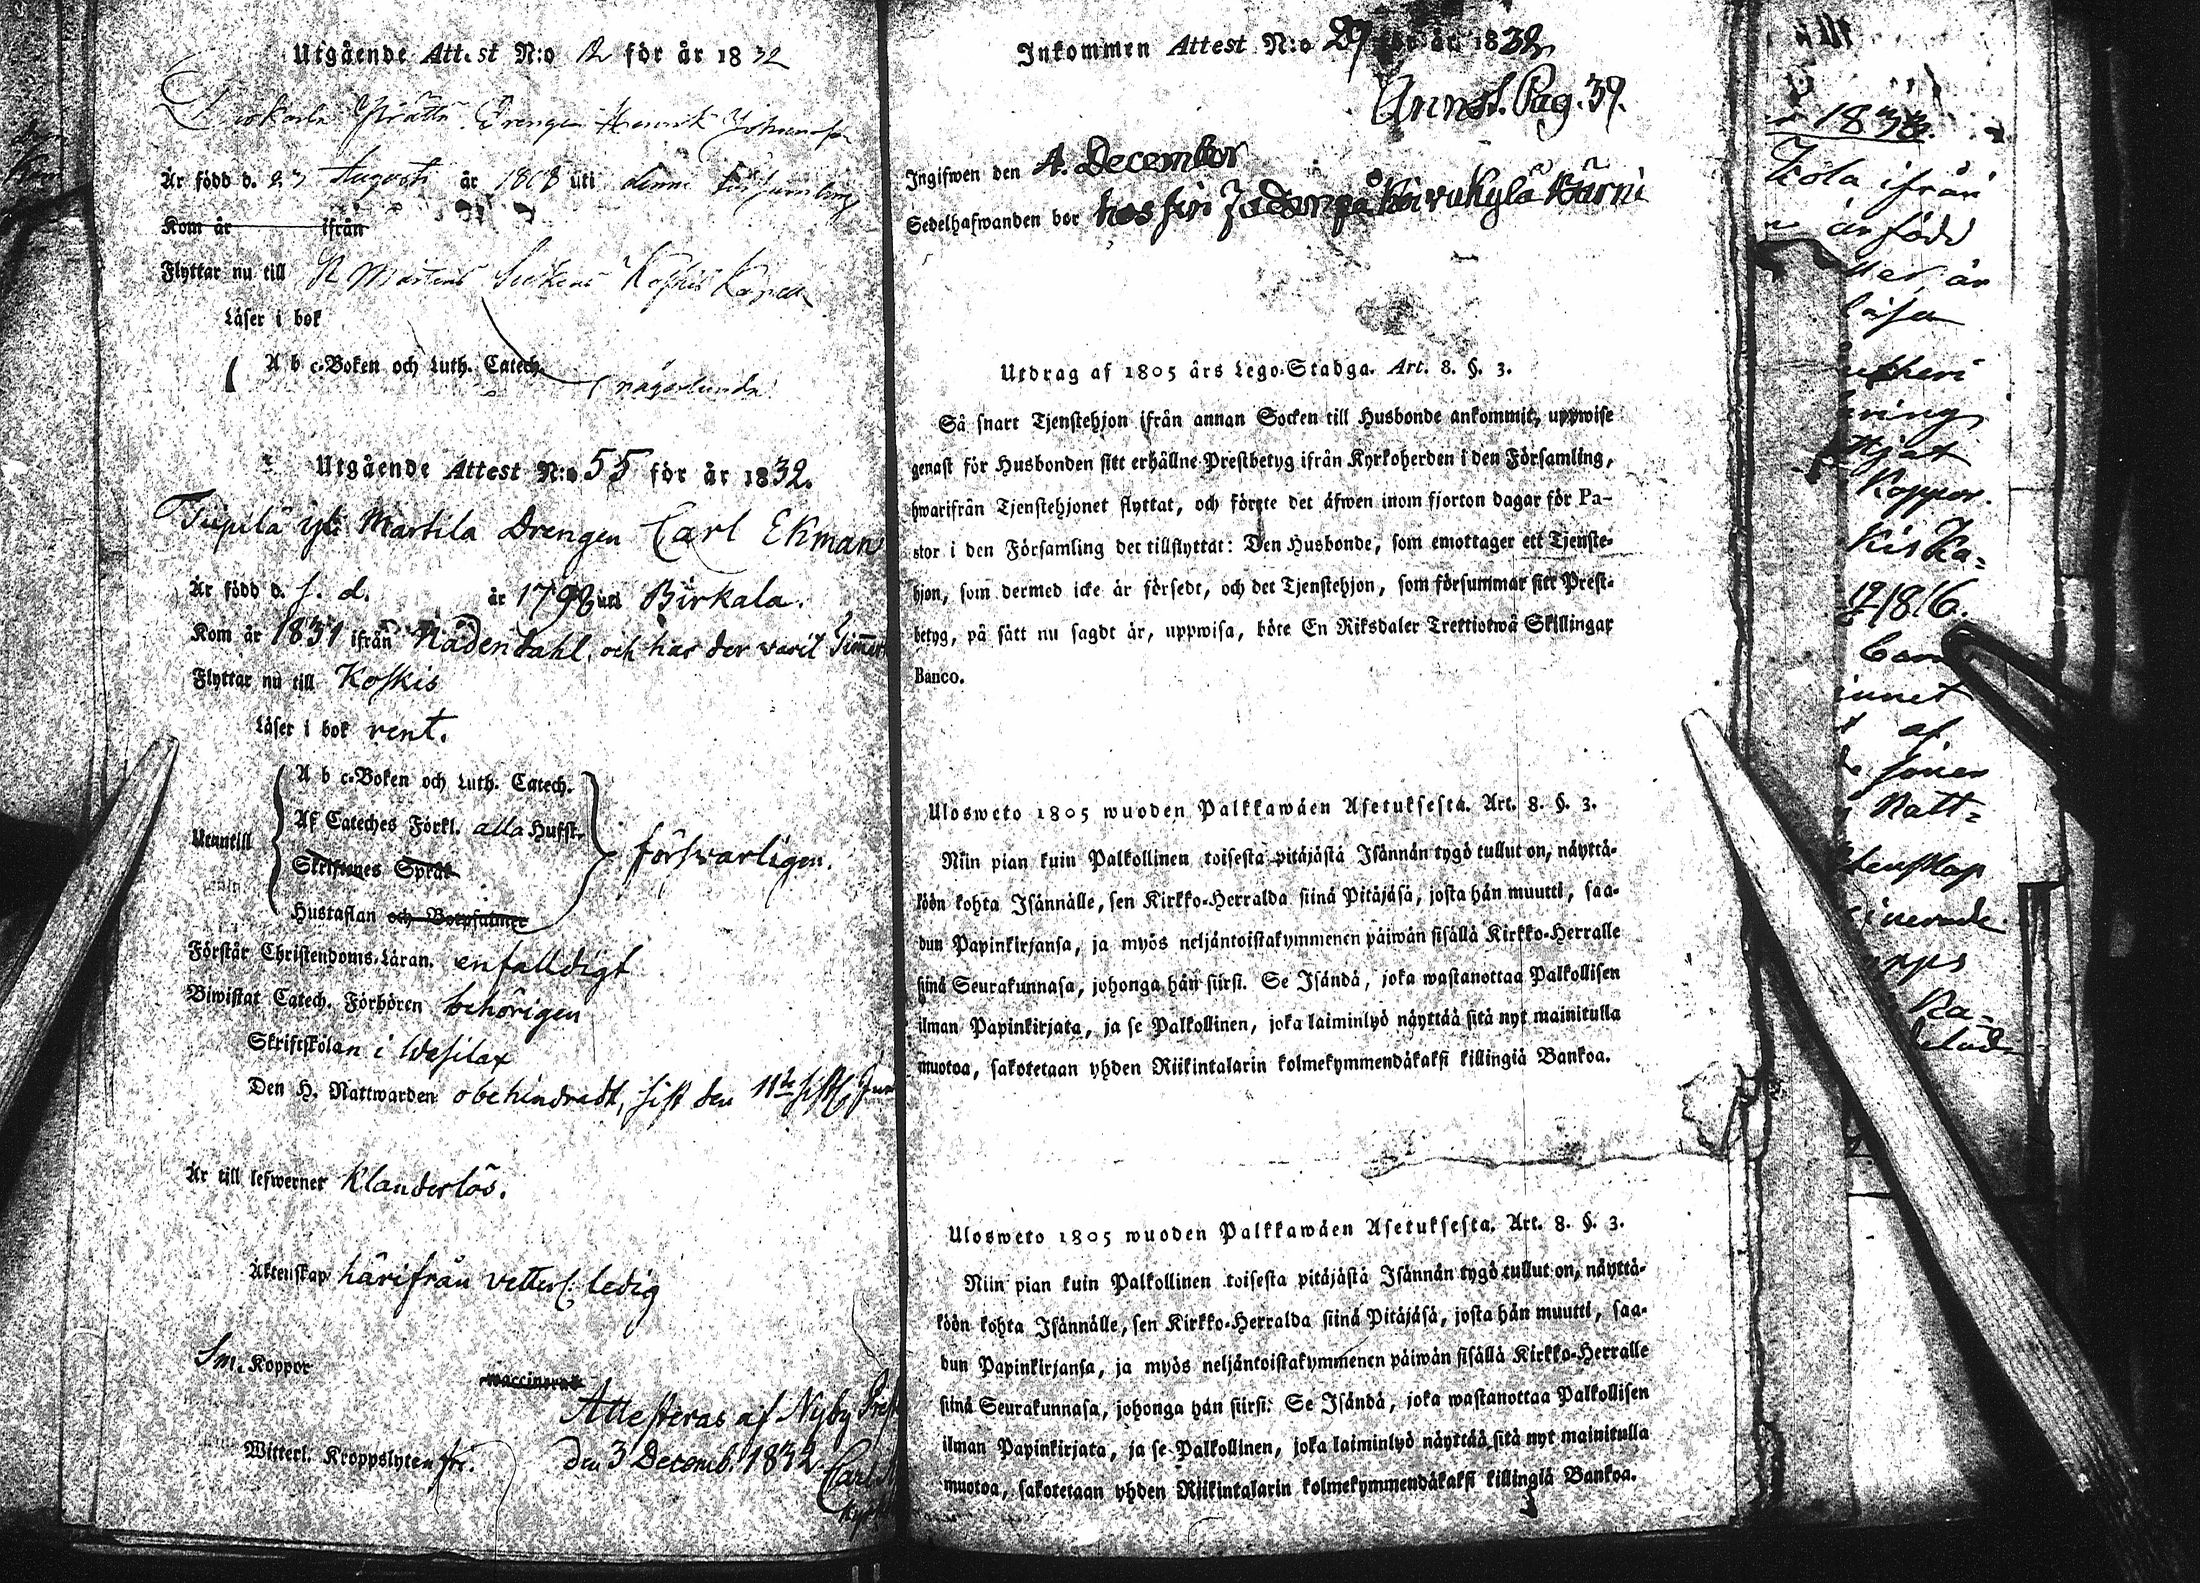 Utgående Attest N:o 12 för år 1832
Drengen Henrik
Är född d. 23 Augusti år 1808 uti denna
Kom år ifrån
Flyttar nu till St Mårtens Sockens Koskis Kapell
Läser i bok
A b c-Boken och Luth. Catech.
någorlunda
Utgående Attest N:o 55 för år 1832.
Tupila Martila Drengen Carl Ekman
Är född d. s. d. år 1798 uti Birkala.
Kom år 1831 ifrån Nådendahl, och har der varit
Flyttar nu till Koskis
Läser i bok rent.
A b c-Boken och Luth. Catech.
Af Cateches Förkl. alla Hufst.
Utantill försvarligen.
Skriftenes Språk
Hustaflan och Botpsalmer
Förstår Christendoms-Läran. enfalldigt
Biwistat Catech. Förhören behörigen
Skriftskolan i Wesilax
Den H. Nattwarden obehindradt, sist den 11te sistl.
Är till lefwernet Klanderlös.
Äktenskap härifrån vetterl. ledig
Sm. Koppor
waccinerad
Attesteras af Nyby
Witterl. Kroppslyten fri. den 3 Decemb. 1832
Carl
Inkommen Attest N:o 29 för år 1832
Annot. Pag. 39.
Ingifwen den 4. December
Sedelhafwanden bor hos sin på Koivukylä
Utdrag af 1805 års Lego-Stadga. Art. 8. §. 3.
Så snart Tjenstehjon ifrån annan Socken till Husbonde ankommit, uppwise
genast för Husbonden sitt erhållne Prestbetyg ifrån Kyrkoherden i den Församling,
hwarifrån Tjenstehjonet flyttat, och förete det äfwen inom fjorton dagar för Pa-
stor i den Församling det tillflyttat: Den Husbonde, som emottager ett Tjenste-
hjon, som dermed icke är försedt, och det Tjenstehjon, som försummar sitt Prest-
betyg, på sätt nu sagdt är, uppwisa, böte En Riksdaler Trettiotwå Skillingar
Banco.
Ulosweto 1805 wuoden Palkkawäen Asetuksesta. Art. 8. §. 3.
Niin pian kuin Palkollinen toisesta pitäjästä Isännän tygö tullut on, näyttä-
köön kohta Isännälle, sen Kirkko-Herralda siinä Pitäjäsä, josta hän muutti, saa-
dun Papinkirjansa, ja myös neljäntoistakymmenen päiwän sisällä Kirkko-Herralle
siinä Seurakunnasa, johonga hän siirsi. Se Isändä, joka wastanottaa Palkollisen
ilman Papinkirjata, ja se Palkollinen, joka laiminlyö näyttää sitä nyt mainitulla
muotoa, sakotetaan yhden Riikintalarin kolmekymmendäkaksi killingiä Bankoa.
Ulosweto 1805 wuoden Palkkawäen Asetuksesta. Art. 8. §. 3.
Niin pian kuin Palkollinen toisesta pitäjästä Isännän tygö tullut on, näyttä-
köön kohta Isännälle, sen Kirkko-Herralda siinä Pitäjäsä, josta hän muutti, saa-
dun Papinkirjansa, ja myös neljäntoistakymmenen päiwän sisällä Kirkko-Herralle
siinä Seurakunnasa, johonga hän siirsi: Se Isändä, joka wastanottaa Palkollisen
ilman Papinkirjata, ja se Palkollinen, joka laiminlyö näyttää sitä nyt mainitulla
muotoa, sakotetaan yhden Riikintalarin kolmekymmendäkaksi killingiä Bankoa.
1833.
ifrån
är född
är
Koppor.
1816.
af
Natt-